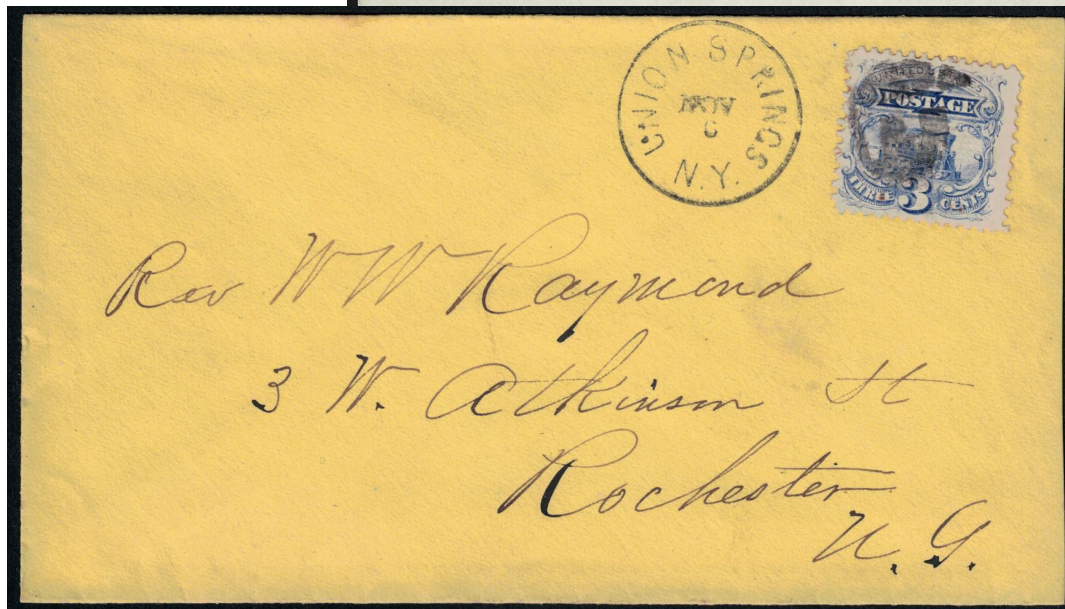 UNION SPRINGS
NOV
6
N.Y.
UNITED STATES
POSTAGE
THREE 3 CENTS
Rev W W Raymond
3 W. Atkinson St
Rochester
N. Y.